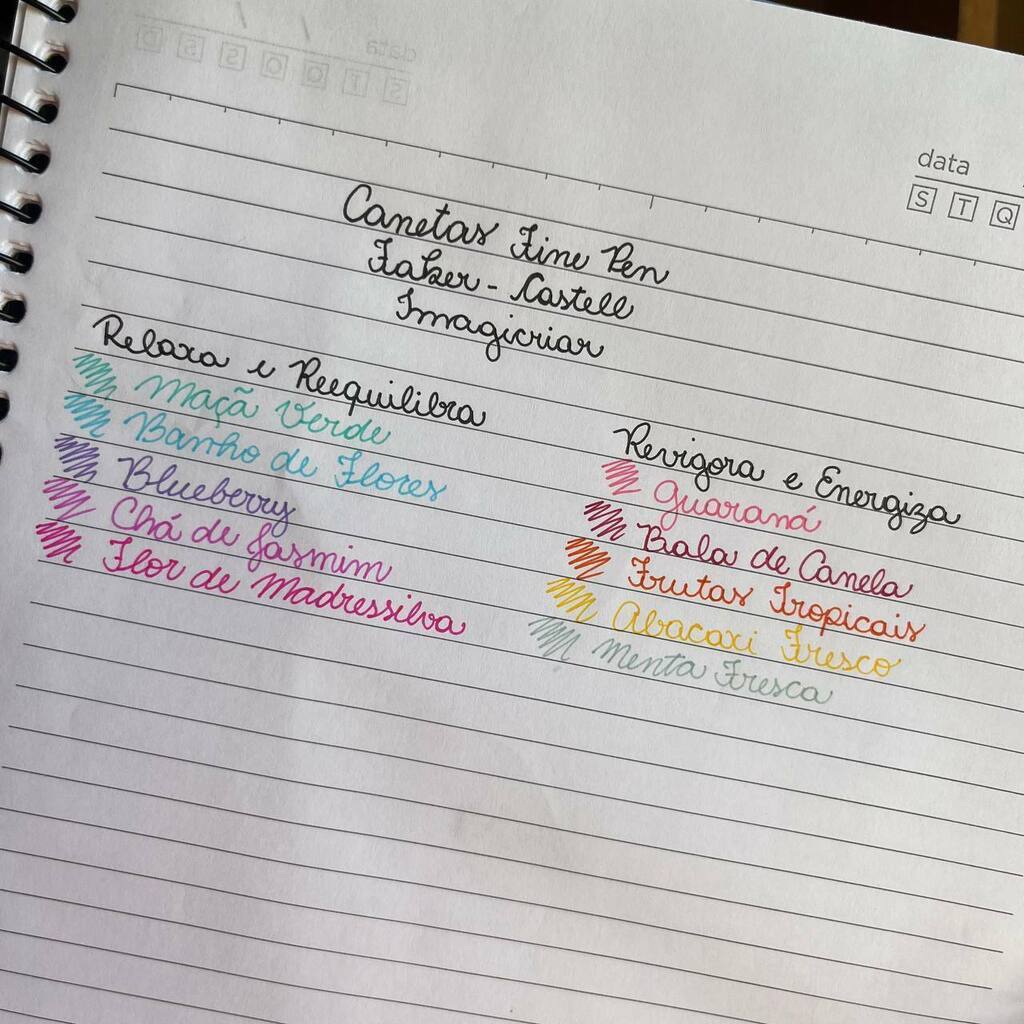 data
S T Q
Canetas Fine Pen
Faber-Castell
Imagicriar
Relaxa e Reequilibra
Maçã Verde
Banho de Flores
Blueberry
Chá de Jasmim
Flor de Madressilva
Revigora e Energiza
Guaraná
Bala de Canela
Frutas Tropicais
Abacaxi Fresco
Menta Fresca